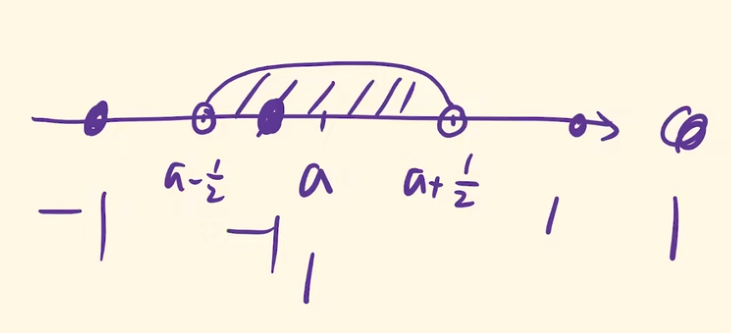 a-1/2 a a+1/2
-1 -1 1 1
1